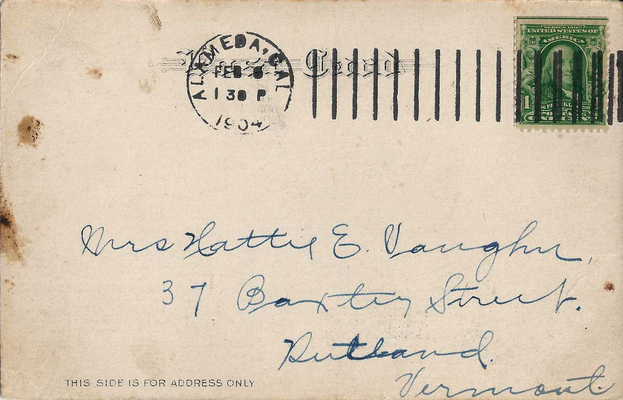 Post Card
ALAMEDA, CAL
FEB 6
1 30 P
1904
SERIES 1902
UNITED STATES OF AMERICA
1
Mrs Hattie E. Vaughn,
37 Baxter Street.
Rutland.
Vermont.
THIS SIDE IS FOR ADDRESS ONLY